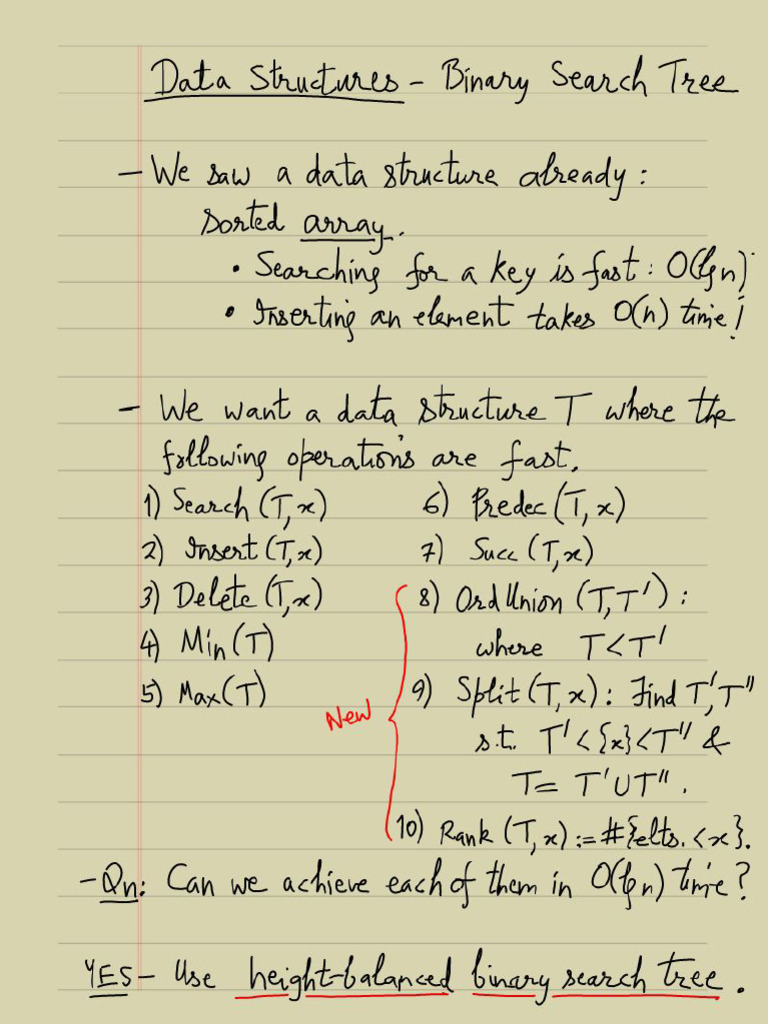 Data Structures - Binary Search Tree
- We saw a data structure already:
sorted array.
• Searching for a key is fast: O(lg n)
• Inserting an element takes O(n) time!
- We want a data structure T where the
following operations are fast.
1) Search (T, x)
2) Insert (T, x)
3) Delete (T, x)
4) Min (T)
5) Max (T)
6) Predec (T, x)
7) Succ (T, x)
New
8) Ord Union (T, T') :
where T < T'
9) Split (T, x) : Find T', T''
s.t. T' < {x} < T'' &
T = T' ∪ T''.
10) Rank (T, x) := #{elts. < x}.
- Qn: Can we achieve each of them in O(lg n) time?
YES - Use height-balanced binary search tree.